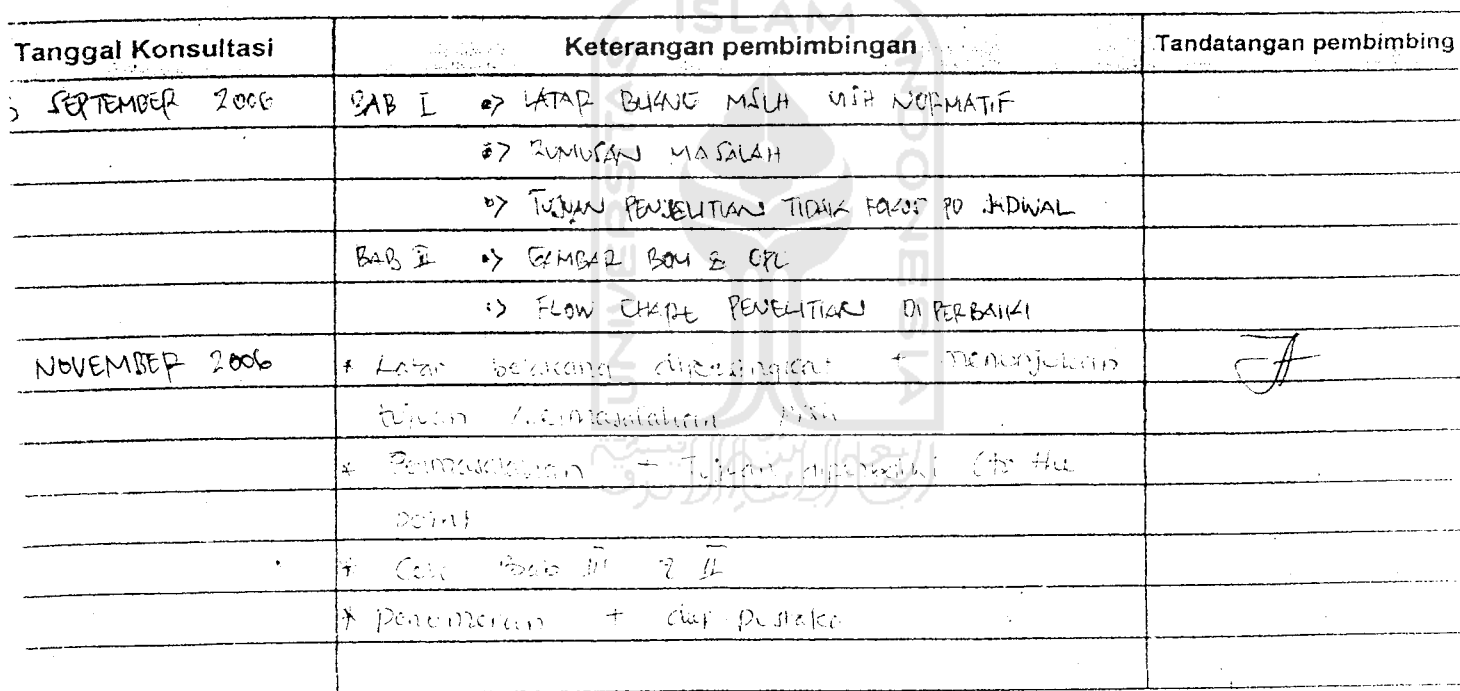 Tanggal Konsultasi Keterangan pembimbingan Tandatangan pembimbing
SEPTEMBER 2006 BAB I => LATAR BLKNG MSLH MSH NORMATIF
=> RUMUSAN MASALAH
=> TUJUAN PENELITIAN TIDAK FOKUS PD JADWAL
BAB II => GAMBAR BOM & OPC
=> FLOW CHART PENELITIAN DI PERBAIKI
NOVEMBER 2006 * Latar belakang dipersingkat + menunjukan
tujuan
* Permasalahan + Tujuan diperbaiki (to the
point
* Cek Bab III & II
* Penomeran + daf pustaka
UNIVERSITAS
ISLAM
INDONESIA